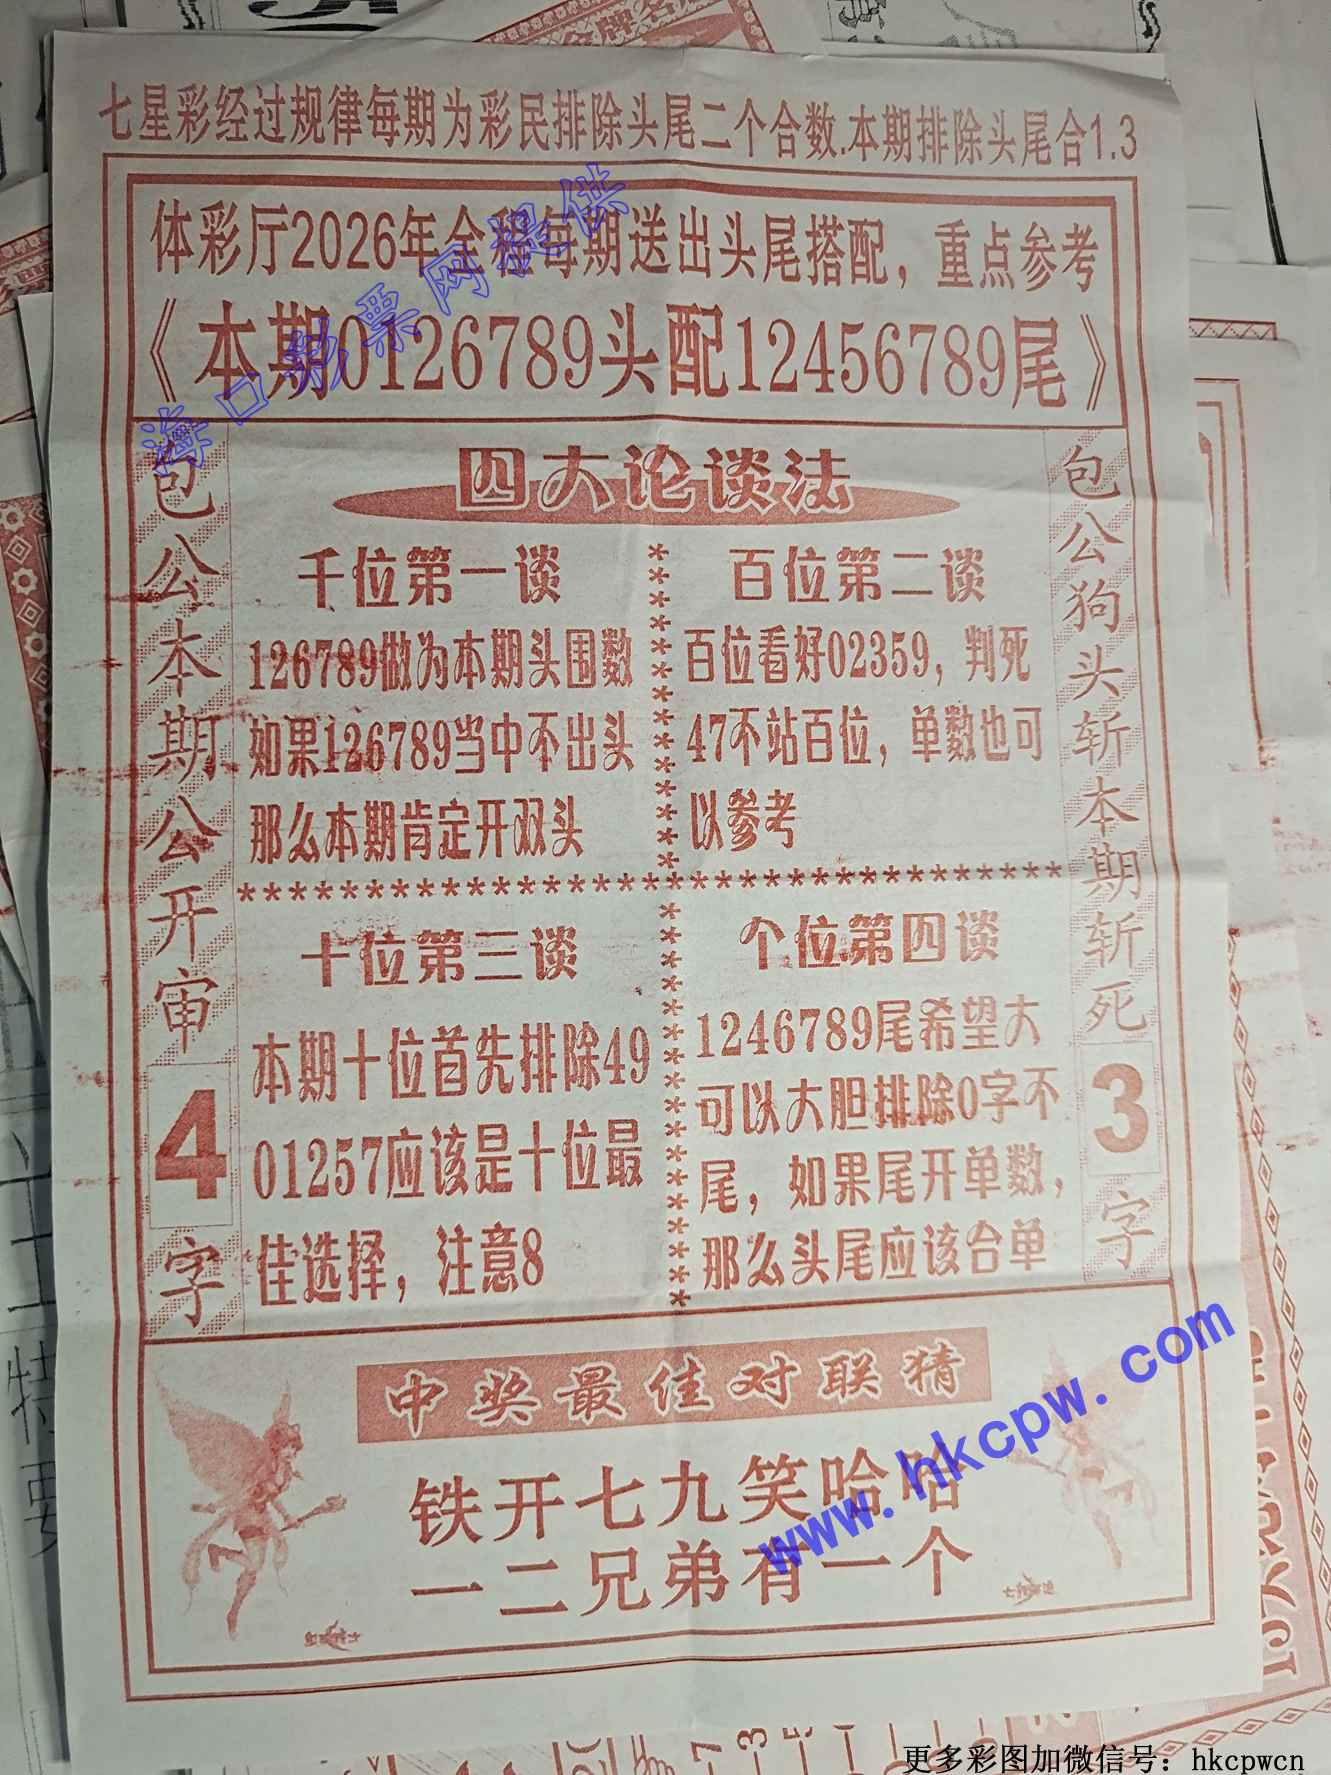 七星彩经过规律每期为彩民排除头尾二个合数.本期排除头尾合1.3
体彩厅2026年全程每期送出头尾搭配，重点参考
《本期0126789头配12456789尾》
海口彩票网提供
包公本期公开审4字
四大论谈法
千位第一谈
126789做为本期头围数
如果126789当中不出头
那么本期肯定开双头
百位第二谈
百位看好02359，判死
47不站百位，单数也可
以参考
十位第三谈
本期十位首先排除49
01257应该是十位最
佳选择，注意8
个位第四谈
1246789尾希望大
可以大胆排除0字不
尾，如果尾开单数，
那么头尾应该合单
包公狗头斩本期斩死3字
中奖最佳对联猜
铁开七九笑哈哈
一二兄弟有一个
www.hkcpw.com
更多彩图加微信号：hkcpwcn